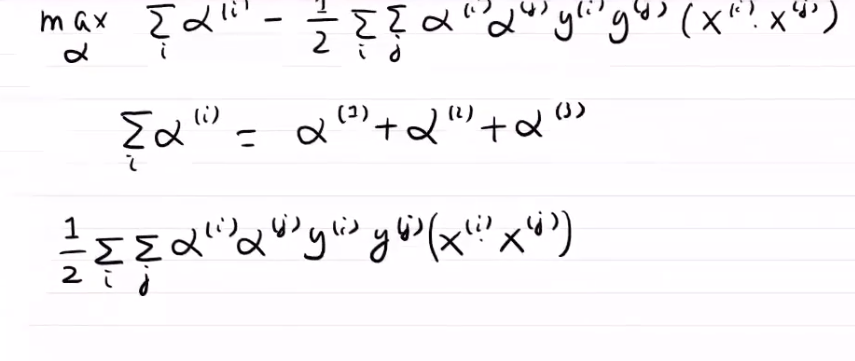 max α ∑i α^(i) - 1/2 ∑i ∑j α^(i) α^(j) y^(i) y^(j) (x^(i) · x^(j))
∑i α^(i) = α^(1) + α^(2) + α^(3)
1/2 ∑i ∑j α^(i) α^(j) y^(i) y^(j) (x^(i) · x^(j))